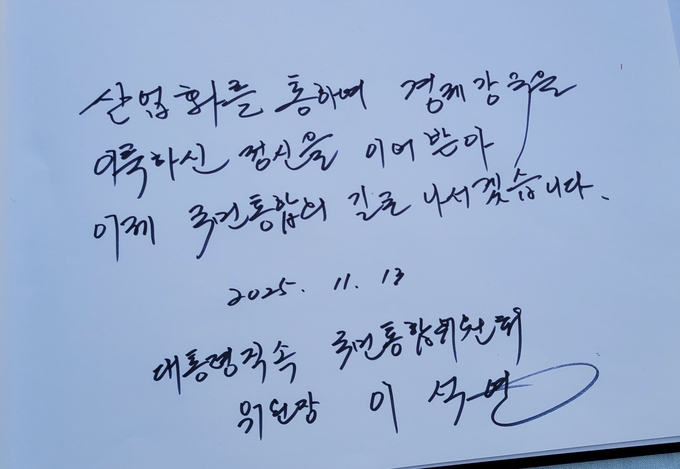 산업화를 통하여 경제강국을
이룩하신 정신을 이어받아
이제 국민통합의 길로 나서겠습니다.
2025. 11. 13
대통령직속 국민통합위원회
위원장 이석연